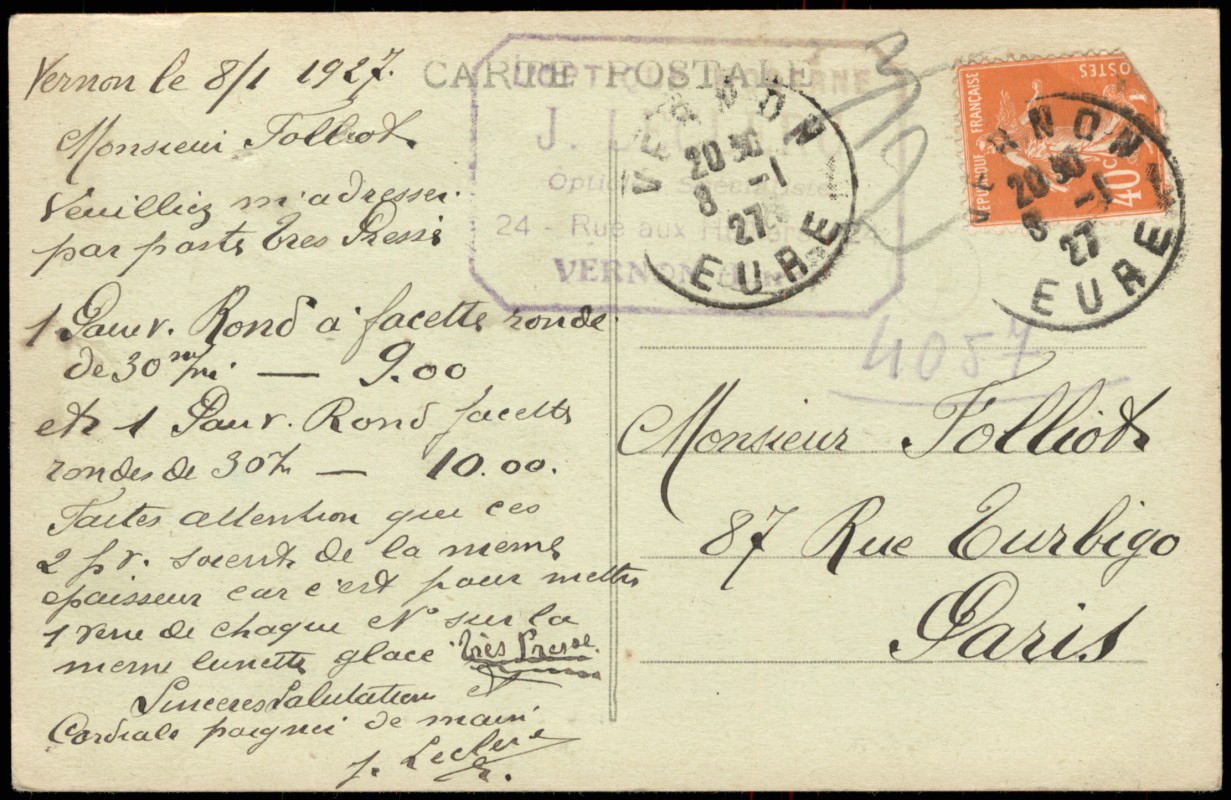 Vernon le 8/1 1927.
CARTE POSTALE
Monsieur Folliot
Veuilliez m'adresser
par poste très Pressé
1 Pair v. Rond à facette ronde
de 30 — 9.00
et 1 Pair v. Rond facette
rondes de 30 — 10.00.
Faites attention que ces
2 pr. soient de la meme
epaisseur car c'est pour mettre
1 verre de chaque N° sur la
meme lunette glace Très Pressé
Sinceres Salutation et
Cordiale poignée de main
J. Leclerc
J.
Opticien Spécialiste
24 - Rue aux 24
VERNON
VERNON
20 30
8 -1
27
EURE
REPUBLIQUE FRANCAISE
POSTES
40 C
VERNON
20 30
8 -1
27
EURE
4057
Monsieur Folliot
87 Rue Turbigo
Paris